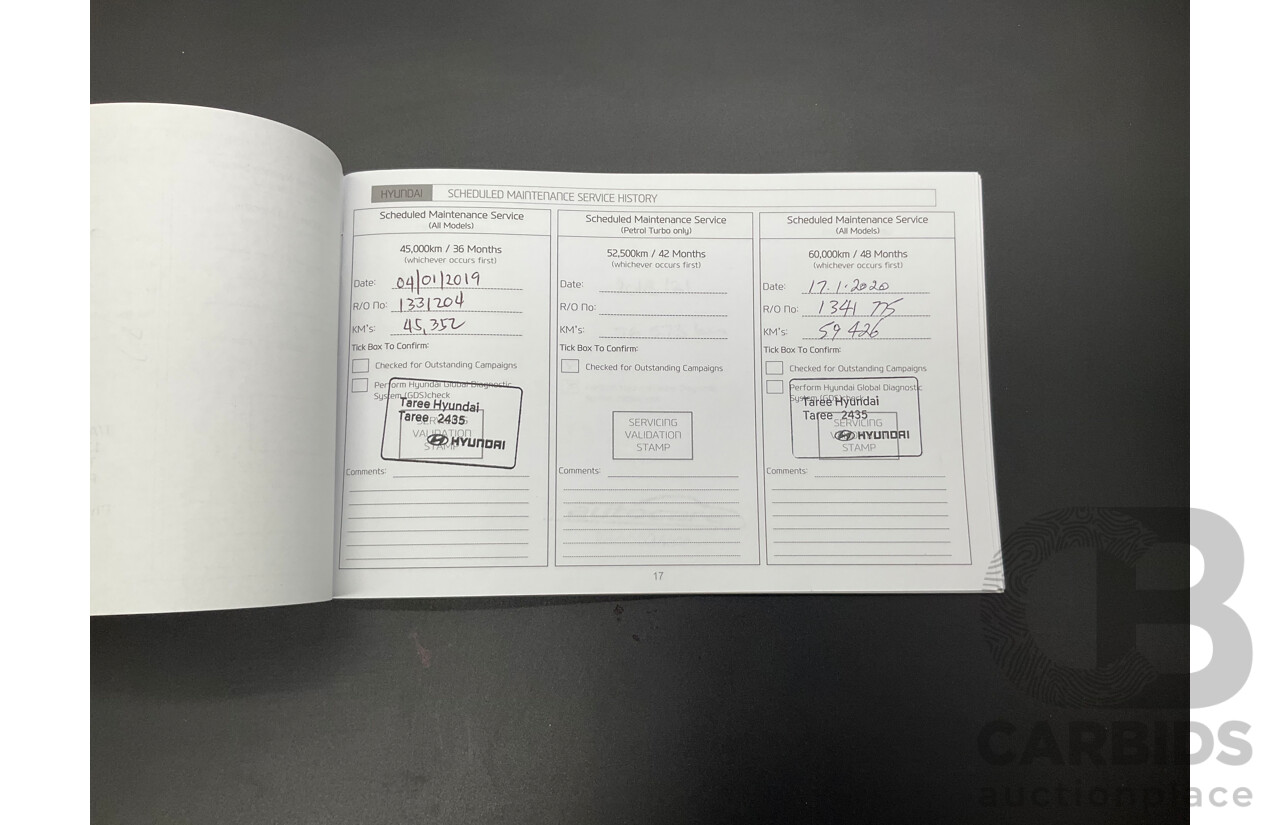 HYUNDAI SCHEDULED MAINTENANCE SERVICE HISTORY
Scheduled Maintenance Service
(All Models)
45,000km / 36 Months
(whichever occurs first)
Date: 04/01/2019
R/O No: 1331204
KM's: 45,352
Tick Box To Confirm:
Checked for Outstanding Campaigns
Perform Hyundai Global Diagnostic
System (GDS)check
Taree Hyundai
Taree 2435
HYUNDAI
SERVICING
VALIDATION
STAMP
Comments:
Scheduled Maintenance Service
(Petrol Turbo only)
52,500km / 42 Months
(whichever occurs first)
Date:
R/O No:
KM's:
Tick Box To Confirm:
Checked for Outstanding Campaigns
SERVICING
VALIDATION
STAMP
Comments:
Scheduled Maintenance Service
(All Models)
60,000km / 48 Months
(whichever occurs first)
Date: 17.1.2020
R/O No: 1341 775
KM's: 59 426
Tick Box To Confirm:
Checked for Outstanding Campaigns
Perform Hyundai Global Diagnostic
System (GDS)check
Taree Hyundai
Taree 2435
HYUNDAI
SERVICING
VALIDATION
STAMP
Comments:
17
CARBIDS
auctionplace